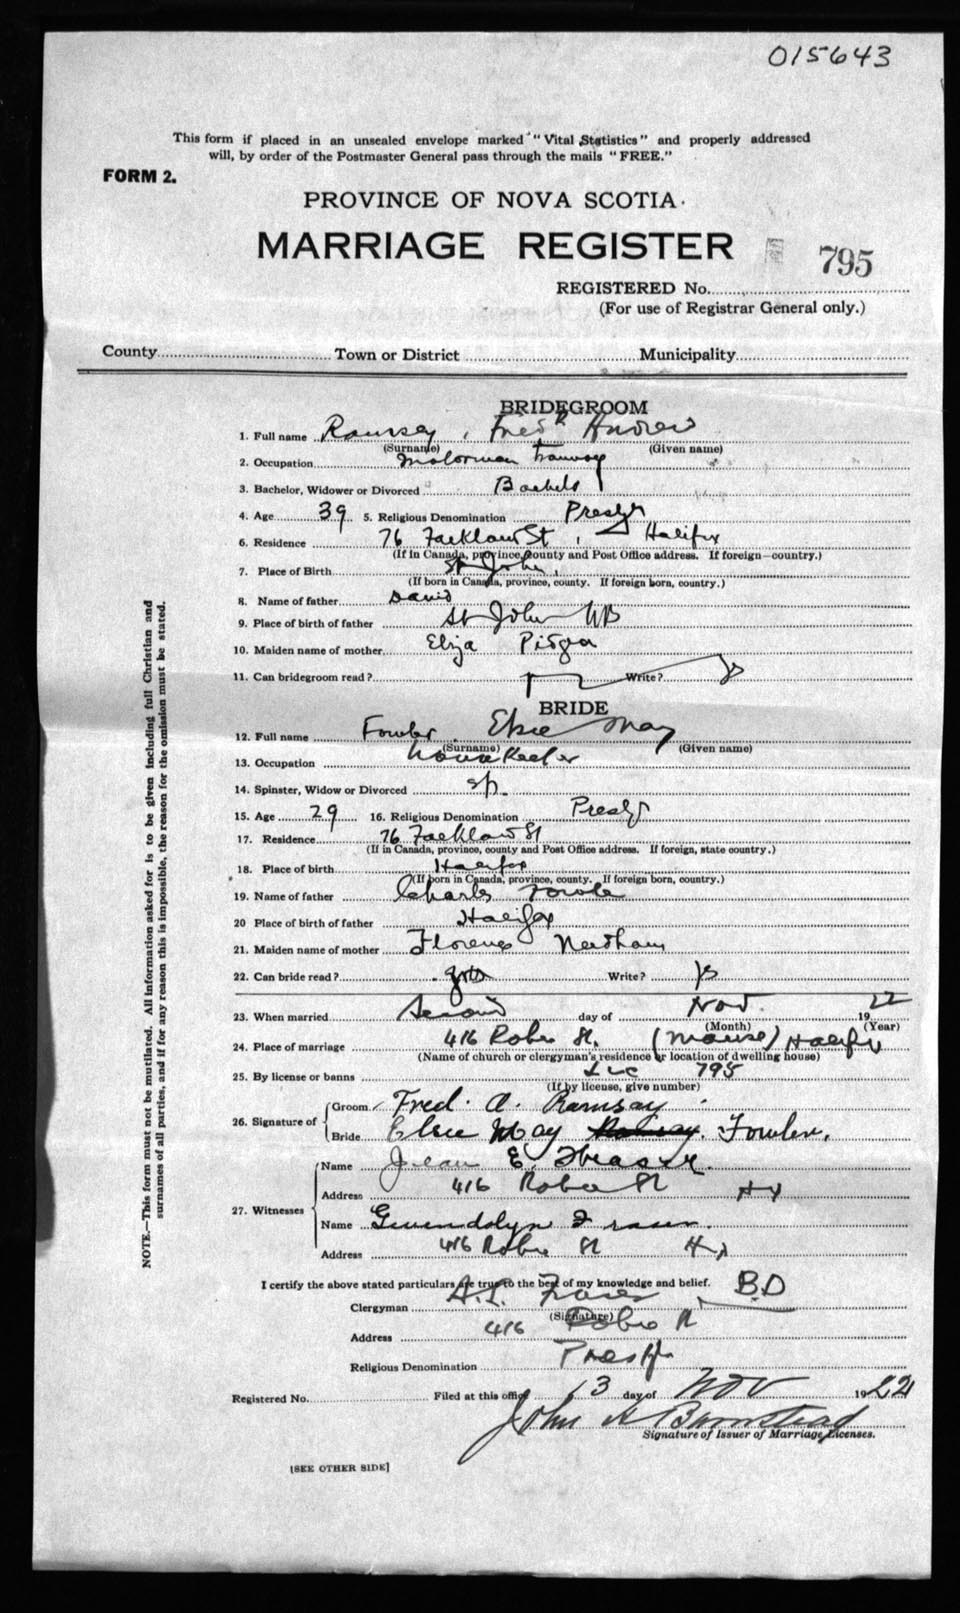 015643
This form if placed in an unsealed envelope marked "Vital Statistics" and properly addressed
will, by order of the Postmaster General pass through the mails "FREE."
FORM 2.
PROVINCE OF NOVA SCOTIA.
MARRIAGE REGISTER
795
REGISTERED No.
(For use of Registrar General only.)
County Town or District Municipality
BRIDEGROOM
1. Full name Ramsay, Fredk Andrew
(Surname) (Given name)
2. Occupation Motorman Tramway
3. Bachelor, Widower or Divorced Bachelo
4. Age 39 5. Religious Denomination Presbyt
6. Residence 76 St, Halifax
(If in Canada, province, county and Post Office address. If foreign—country.)
7. Place of Birth St John,
(If born in Canada, province, county. If foreign born, country.)
8. Name of father David
9. Place of birth of father St John NB
10. Maiden name of mother Eliza
11. Can bridegroom read? Write? ys
BRIDE
12. Full name Fowler Elsie May
(Surname) (Given name)
13. Occupation Housekeeper
14. Spinster, Widow or Divorced sp.
15. Age 29 16. Religious Denomination Presbyt
17. Residence 76 St
(If in Canada, province, county and Post Office address. If foreign, state country.)
18. Place of birth Halifax
(If born in Canada, province, county. If foreign born, country.)
19. Name of father Charles Fowle
20 Place of birth of father Halifax
21. Maiden name of mother Florence Needham
22. Can bride read? Write? ys
23. When married Second day of Nov. 1922
(Month) (Year)
24. Place of marriage 416 Robie St. (Manse) Halifax
(Name of church or clergyman's residence or location of dwelling house)
25. By license or banns Lic 795
(If by license, give number)
26. Signature of Groom Fred. A. Ramsay
Bride Elsie May Ramsay. Fowler.
27. Witnesses
Name Jean E. Fraser.
Address 416 Robie St Hx
Name Gwendolyn Fraser.
Address 416 Robie St Hx
I certify the above stated particulars are true to the best of my knowledge and belief.
Clergyman A.L. Fraser B.D
(Signature)
Address 416 Robie St
Religious Denomination Presbyt
Registered No. Filed at this office 3 day of Nov 1922
John A Barnstead
Signature of Issuer of Marriage Licenses.
[SEE OTHER SIDE]
NOTE.—This form must not be mutilated. All information asked for is to be given including full Christian and
surnames of all parties, and if for any reason this is impossible, the reason for the omission must be stated.